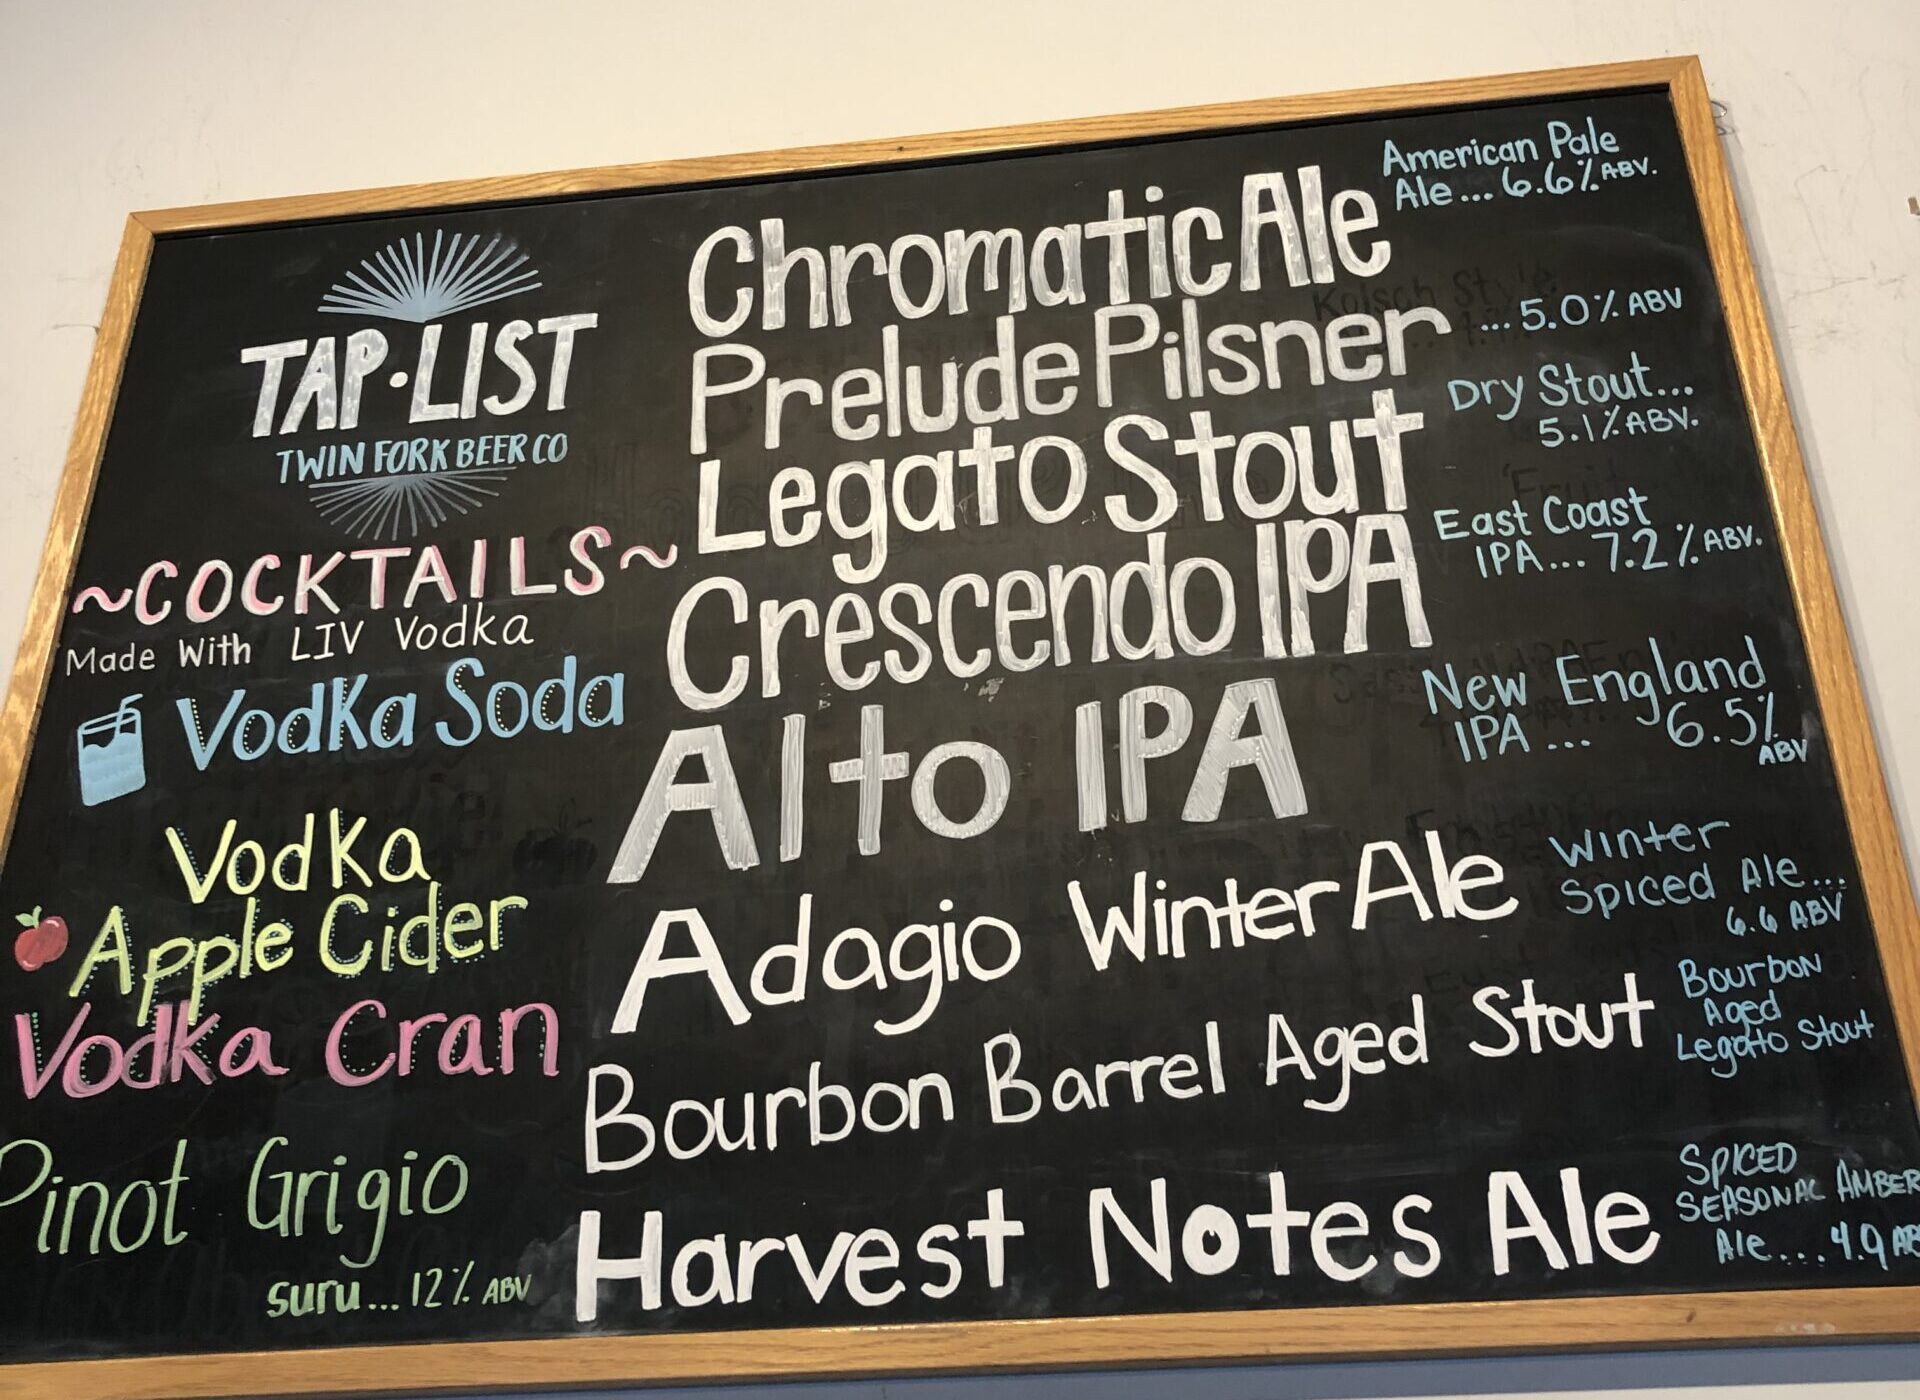 TAP·LIST
TWIN FORK BEER CO
~COCKTAILS~
Made With LIV Vodka
Vodka Soda
Vodka
Apple Cider
Vodka Cran
Pinot Grigio
suru...12% ABV
Chromatic Ale
American Pale
Ale...6.6% ABV.
Prelude Pilsner
...5.0% ABV
Legato Stout
Dry Stout...
5.1% ABV.
Crescendo IPA
East Coast
IPA...7.2% ABV.
Alto IPA
New England
IPA... 6.5%
ABV
Adagio Winter Ale
Winter
Spiced Ale...
6.6 ABV
Bourbon Barrel Aged Stout
Bourbon
Aged
Legato Stout
Harvest Notes Ale
SPICED
SEASONAL AMBER
Ale...4.9 AB